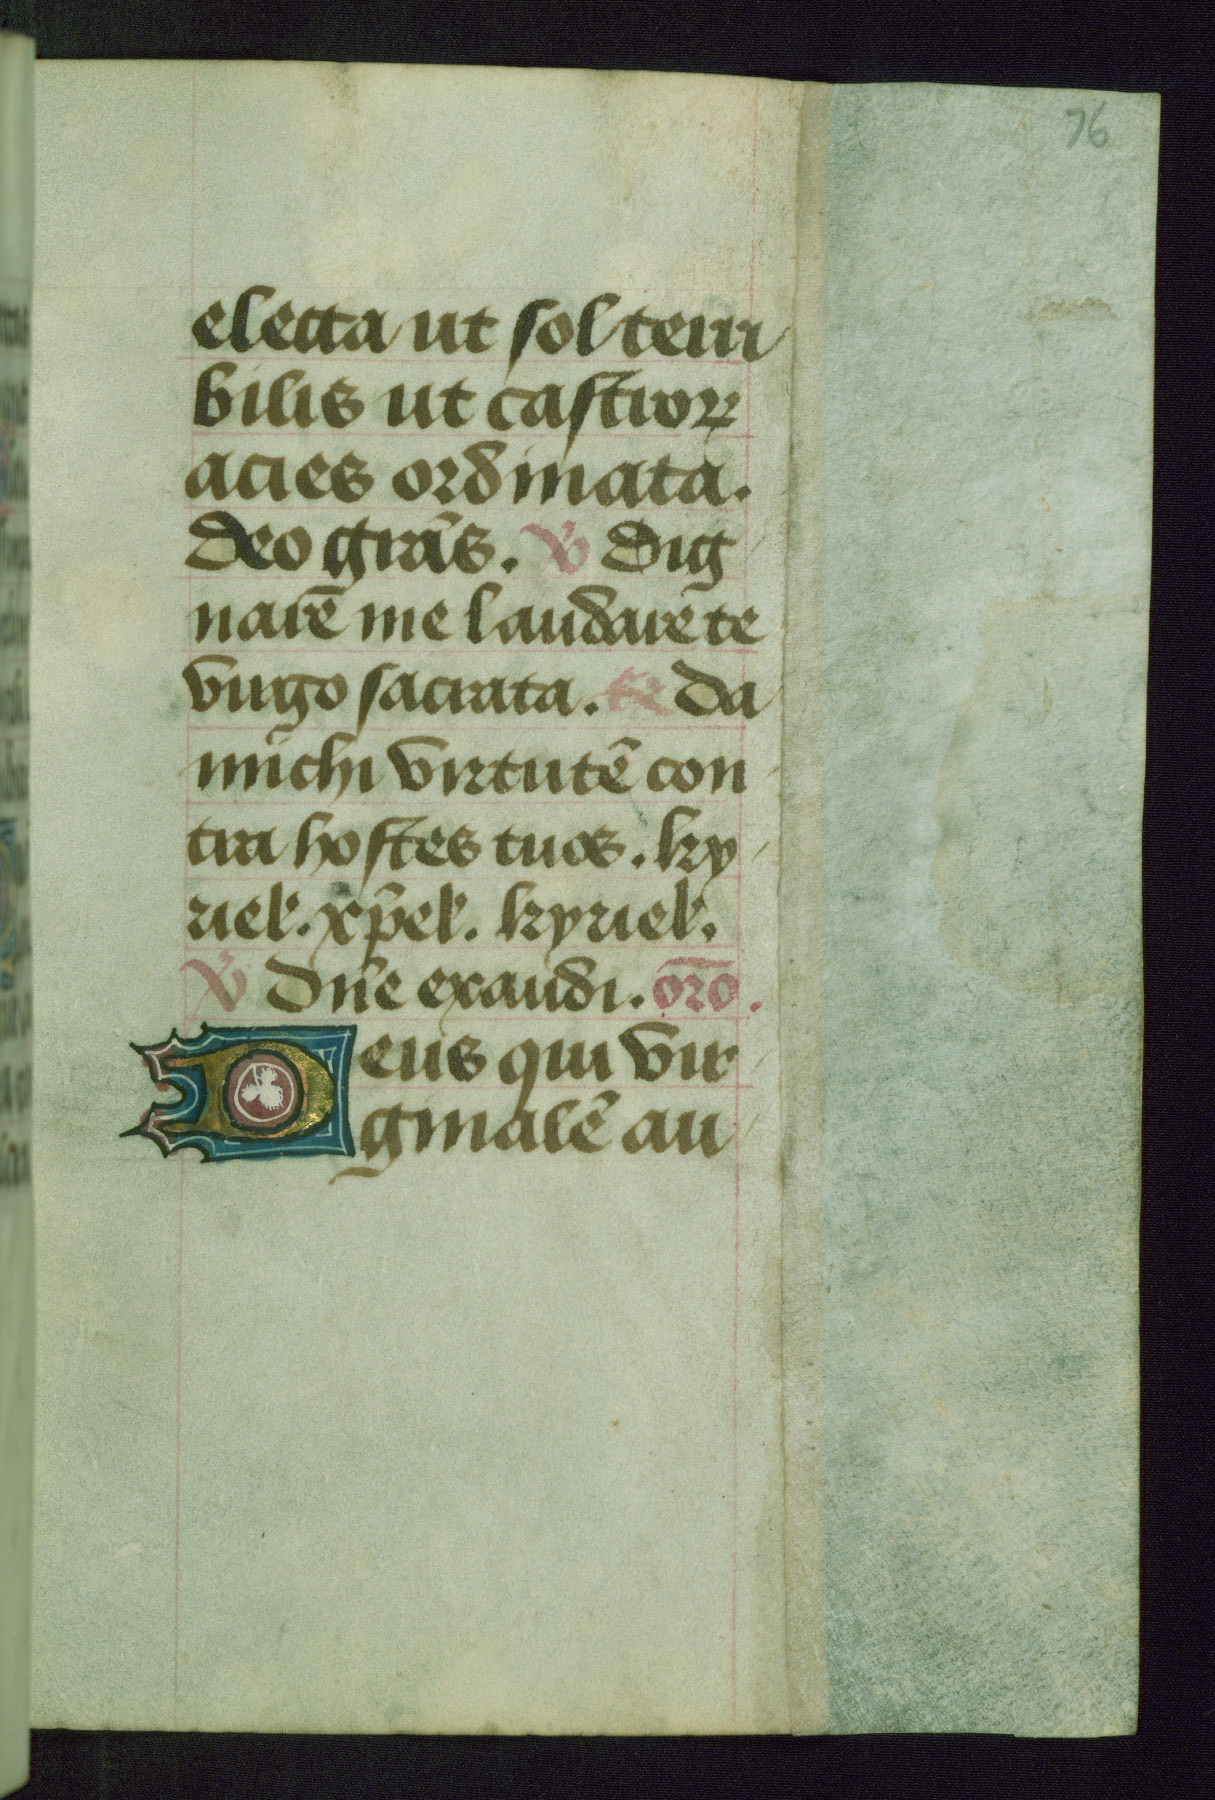 76
electa ut sol terri
bilis ut castroꝝ
acies ordinata.
deo grãs. ℣ Dig
narẽ me laudare te
virgo sacrata. ℟ Da
michi virtutẽ con
tra hostes tuos. ky
riel. xp̃el. kyriel.
℣ Dñe exaudi. or̃o.
Deus qui vir
ginalẽ au